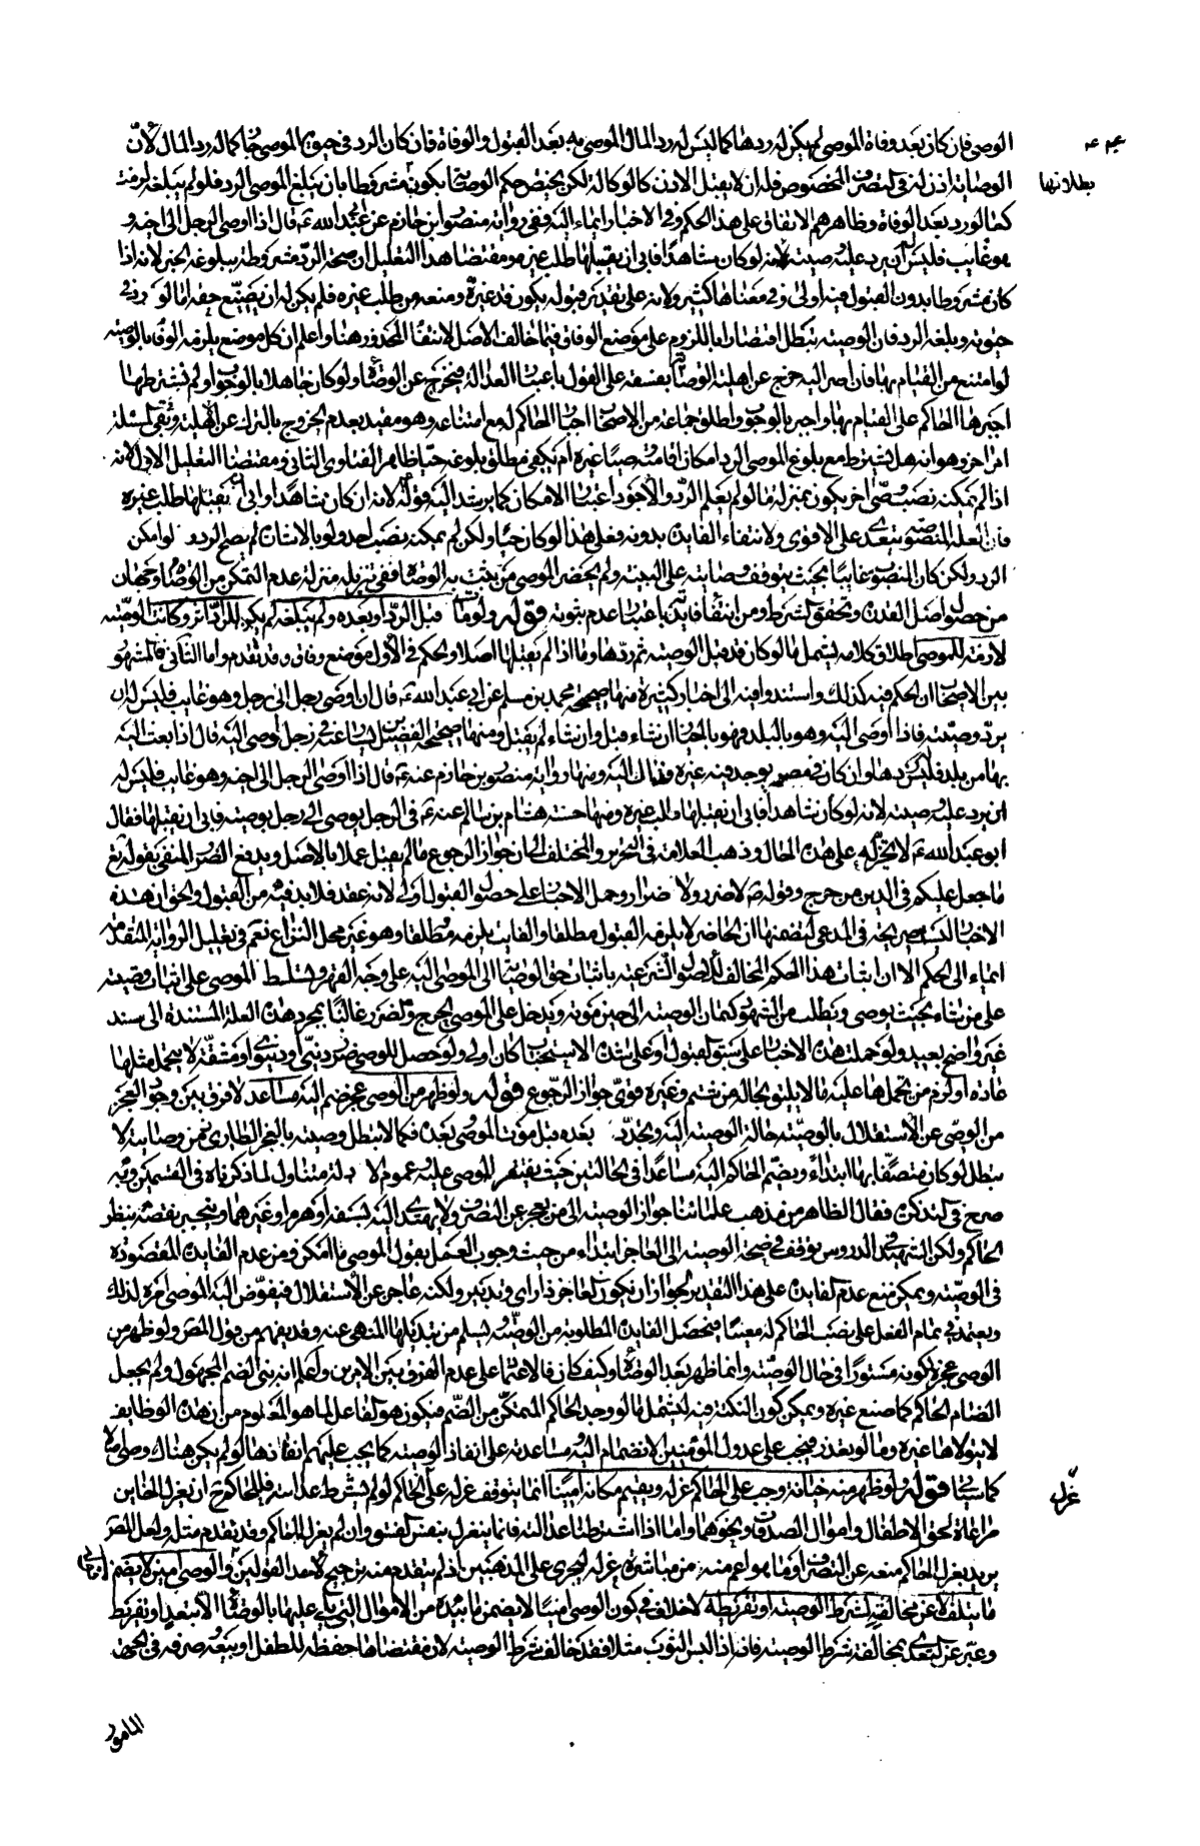 الوصي فان كان بعد وفاة الموصي لم يكن له ردها كما ليس له رد المال الموصى به بعد القبول والوفاة فان كان الرد في حيوة الموصي جاز كما له رد المال لان
بطلانها
الوصاية اذن له في التصرف المخصوص فله ان لا يقبل الاذن كالوكالة لكن يختص حكم الوصاية هنا بكونه مشروطا بان يبلغ الموصي الرد فلو لم يبلغه لزمت
كما لو رد بعد الوفاة وظاهرهم الاتفاق على هذا الحكم وفي الاخبار ايماء اليه ففي رواية منصور بن حازم عن ابي عبد الله ع قال اذا اوصى الرجل الى اخيه و
هو غايب فليس له ان يرد عليه وصيته لانه لو كان شاهدا فابى ان يقبلها طلب غيره ومقتضى هذا التعليل ان صحة الرد مشروطة ببلوغه الخبر لانه اذا
كان مشروطا بدون القبول فمعه اولى وفي معناها كثير ولانه على تقدير قبوله يكون قد غره ومنعه من طلب غيره فلم يكن له ان يضيع حقه اما لو رد في
حيوته وبلغه الرد فان الوصية تبطل اقتصارا باللزوم على موضع الوفاق فيما خالف الاصل لانتفاء المحذور هنا واعلم ان كل موضع يلزمه الوفاء بالوصية
لو امتنع من القيام بها فان اصر اليه خرج عن اهلية الوصاية بفسقه على القول باعتبار العدالة فيخرج عن الوصاية ولو كان جاهلا بالوجوب او لم نشترطها
اجبره الحاكم على القيام بها واجبر بالوجوب واطلق جماعة من الاصحاب اجبار الحاكم له مع امتناعه وهو مقيد بعدم الخروج بالترك عن الاهلية وبقي في المسئلة
امر اخر وهو انه هل يشترط مع بلوغ الموصي الرد امكان اقامته وصيا غيره ام يكفي مطلق بلوغه حيا ظاهر الفتاوى الثاني ومقتضى التعليل الاول لانه
اذا لم يمكنه نصب وصي اخر يكون بمنزلة ما لو لم يعلم الرد والاجود اعتبار الامكان كما يرشد اليه قوله ع لانه ان كان شاهدا وابى ان يقبلها طلب غيره
فان العلة المنصوصة تتعدى على الاقوى ولانتفاء الفايدة بدونه فعلى هذا لو كان حيا ولكن لم يمكنه نصب احد ولو بالاشارة لم يصح الرد و لو امكن
الرد ولكن كان المنصوب غايبا بحيث يتوقف وصايته على البينة ولم يحضر الموصي من يثبت به الوصاية ففي تنزيله منزلة عدم التمكن من الوصاية وجهان
من حصول اصل القدرة وتحقق الشرط ومن انتفاء فايدته باعتبار عدم ثبوته قوله ولو مات قبل الرد او بعده ولم يبلغه لم يكن للرد اثر وكانت الوصية
لازمة للموصى اطلاق كلامه يشمل ما لو كان قد قبل الوصية ثم ردها وما اذا لم يقبلها اصلا والحكم في الاول موضع وفاق وقد تقدم واما الثاني فالمشهور
بين الاصحاب ان الحكم فيه كذلك واستندوا فيه الى اخبار كثيرة منها صحيحة محمد بن مسلم عن ابي عبد الله ع قال ان اوصى رجل الى رجل وهو غايب فليس له ان
يرد وصيته فاذا اوصى اليه وهو بالبلد فهو بالخيار ان شاء قبل وان شاء لم يقبل ومنها صحيحة الفضيل بن يسار عنه في رجل يوصى اليه قال اذا بعث اليه
بها من بلد فليس له ردها وان كان في مصر يوجد فيه غيره فذاك اليه ومنها رواية منصور بن حازم عنه ع قال اذا اوصى الرجل الى اخيه وهو غايب فليس له
ان يرد عليه وصيته لانه لو كان شاهدا فابى ان يقبلها طلب غيره ومنها حسنة هشام بن سالم عنه ع في الرجل يوصي الى رجل بوصيته فابى ان يقبلها فقال
ابو عبد الله ع لا يخذله على هذه الحال وذهب العلامة في التحرير والمختلف الى جواز الرجوع ما لم يقبل عملا بالاصل ويدفع الضرر المنفي بقوله تع
ما جعل عليكم في الدين من حرج وقوله ص لا ضرر ولا ضرار وحمل الاخبار على حصول القبول اولا لانه عقد فلا بد فيه من القبول والحق ان هذه
الاخبار ليست صريحة في المدعى لتضمنها ان الحاضر لا يلزمه القبول مطلقا والغايب يلزمه مطلقا وهو غير محل النزاع نعم في تعليل الرواية المتقدمة
ايماء الى الحكم الا ان اثبات هذا الحكم المخالف للاصول الشرعية باثبات حق الوصاية الى الموصى اليه على وجه القهر وتسليط الموصي على اثبات وصيته
على من شاء بحيث يوصي ويطلب من الشهود كتمان الوصية الى حين موته ويدخل على الوصي الحرج والضرر غالبا بمجرد هذه العلة المستندة الى سند
غير واضح بعيد ولو حملت هذه الاخبار على سبق القبول او على شدة الاستحباب كان اولى ولو حصل للوصي ضرر ديني او دنيوي او مشقة لا يتحمل مثلها
عادة او لزم من تحملها عليه ما لا يليق بحاله من شتم وغيره قوي جواز الرجوع قوله ولو ظهر من الوصي عجز ضم اليه مساعد لا فرق بين وجود العجز
من الوصي عن الاستقلال بالوصية حالة الوصية اليه وتجدد بعده قبل موت الموصي بعده فكما لا تبطل وصيته بالعجز الطاري فمن وصايته لا
تبطل لو كان متصفا بها ابتداء ويضم الحاكم اليه مساعدا في الحالتين حيث يقتصر الموصي عليه وعموم الا دلة متناول لما ذكرناه في القسمين وبه
صرح في التذكرة فقال الظاهر من مذهب علمائنا جواز الوصية الى من يعجز عن التصرف ولا يهتدى اليه لسفه او هرم او غيرهما وينجبر نقصه بنظر
الحاكم ولكن الشهيد في الدروس توقف في صحة الوصية الى العاجز ابتداء من حيث وجوب العمل بقول الموصي ما امكن ومن عدم الفايدة المقصودة
في الوصية ويمكن منع عدم الفايدة على هذا التقدير لجواز ان يكون العاجز ذا راي وتدبير ولكنه عاجز عن الاستقلال فيفوض اليه الموصي امره لذلك
ويعتمد في تمام الفعل على نصب الحاكم له معينا فيحصل الفايدة المطلوبة من الوصية وتسلم من تبديلها المنهي عنه وقد يفهم من قول المص ولو ظهر من
الوصي عجز كونه مستورا في حال الوصية وانما ظهر بعد الوصاية وكيف كان فالاعتماد على عدم الفرق بين الامرين واعلم انه بنى الضم للمجهول ولم يجعل
الضام الحاكم كما صنع غيره ويمكن كون النكتة فيه ليشمل ما لو وجد الحاكم المتمكن من الضم فيكون هو الفاعل لما هو المعلوم من ان هذه الوظايف
لا يتولاها غيره وما لو تعذر فيجب على عدول المؤمنين الانضمام اليه ومساعدته على انفاذ الوصية كما يجب عليهم انفاذها لو لم يكن هناك وصي اصلا
كما سياتي قوله ولو ظهر منه خيانة وجب على الحاكم عزله ويقيم مكانه امينا انما يتوقف عزله على الحاكم لو لم نشترط عدالته فللحاكم ح ان يعزل الخاين
عزل
مراعاة لحق الاطفال واموال الصدقات ونحوهما واما اذا اشترطنا عدالته فانما ينعزل بنفس الفسق وان لم يعزله الحاكم وقد تقدم مثله ولعل المص
يريد بعزل الحاكم منعه عن التصرف او ما هو اعم منه من مباشرة عزله ليجري على المذهبين اذ لم يتقدم منه ترجيح لاحد القولين قوله والوصي امين لا يضمن
ما يتلف الا عن مخالفة لشرط الوصية او تفريطه لا خلاف في كون الوصي امينا لا يضمن ما بيده من الاموال التي يلي عليها بالوصاية الا بتعد او تفريط
وعبر عن التعدي بمخالفة شرط الوصية فانه اذا لبس الثوب مثلا فقد خالف شرط الوصية لان مقتضاها حفظه للطفل او بيعه وصرفه في الجهة
المامور